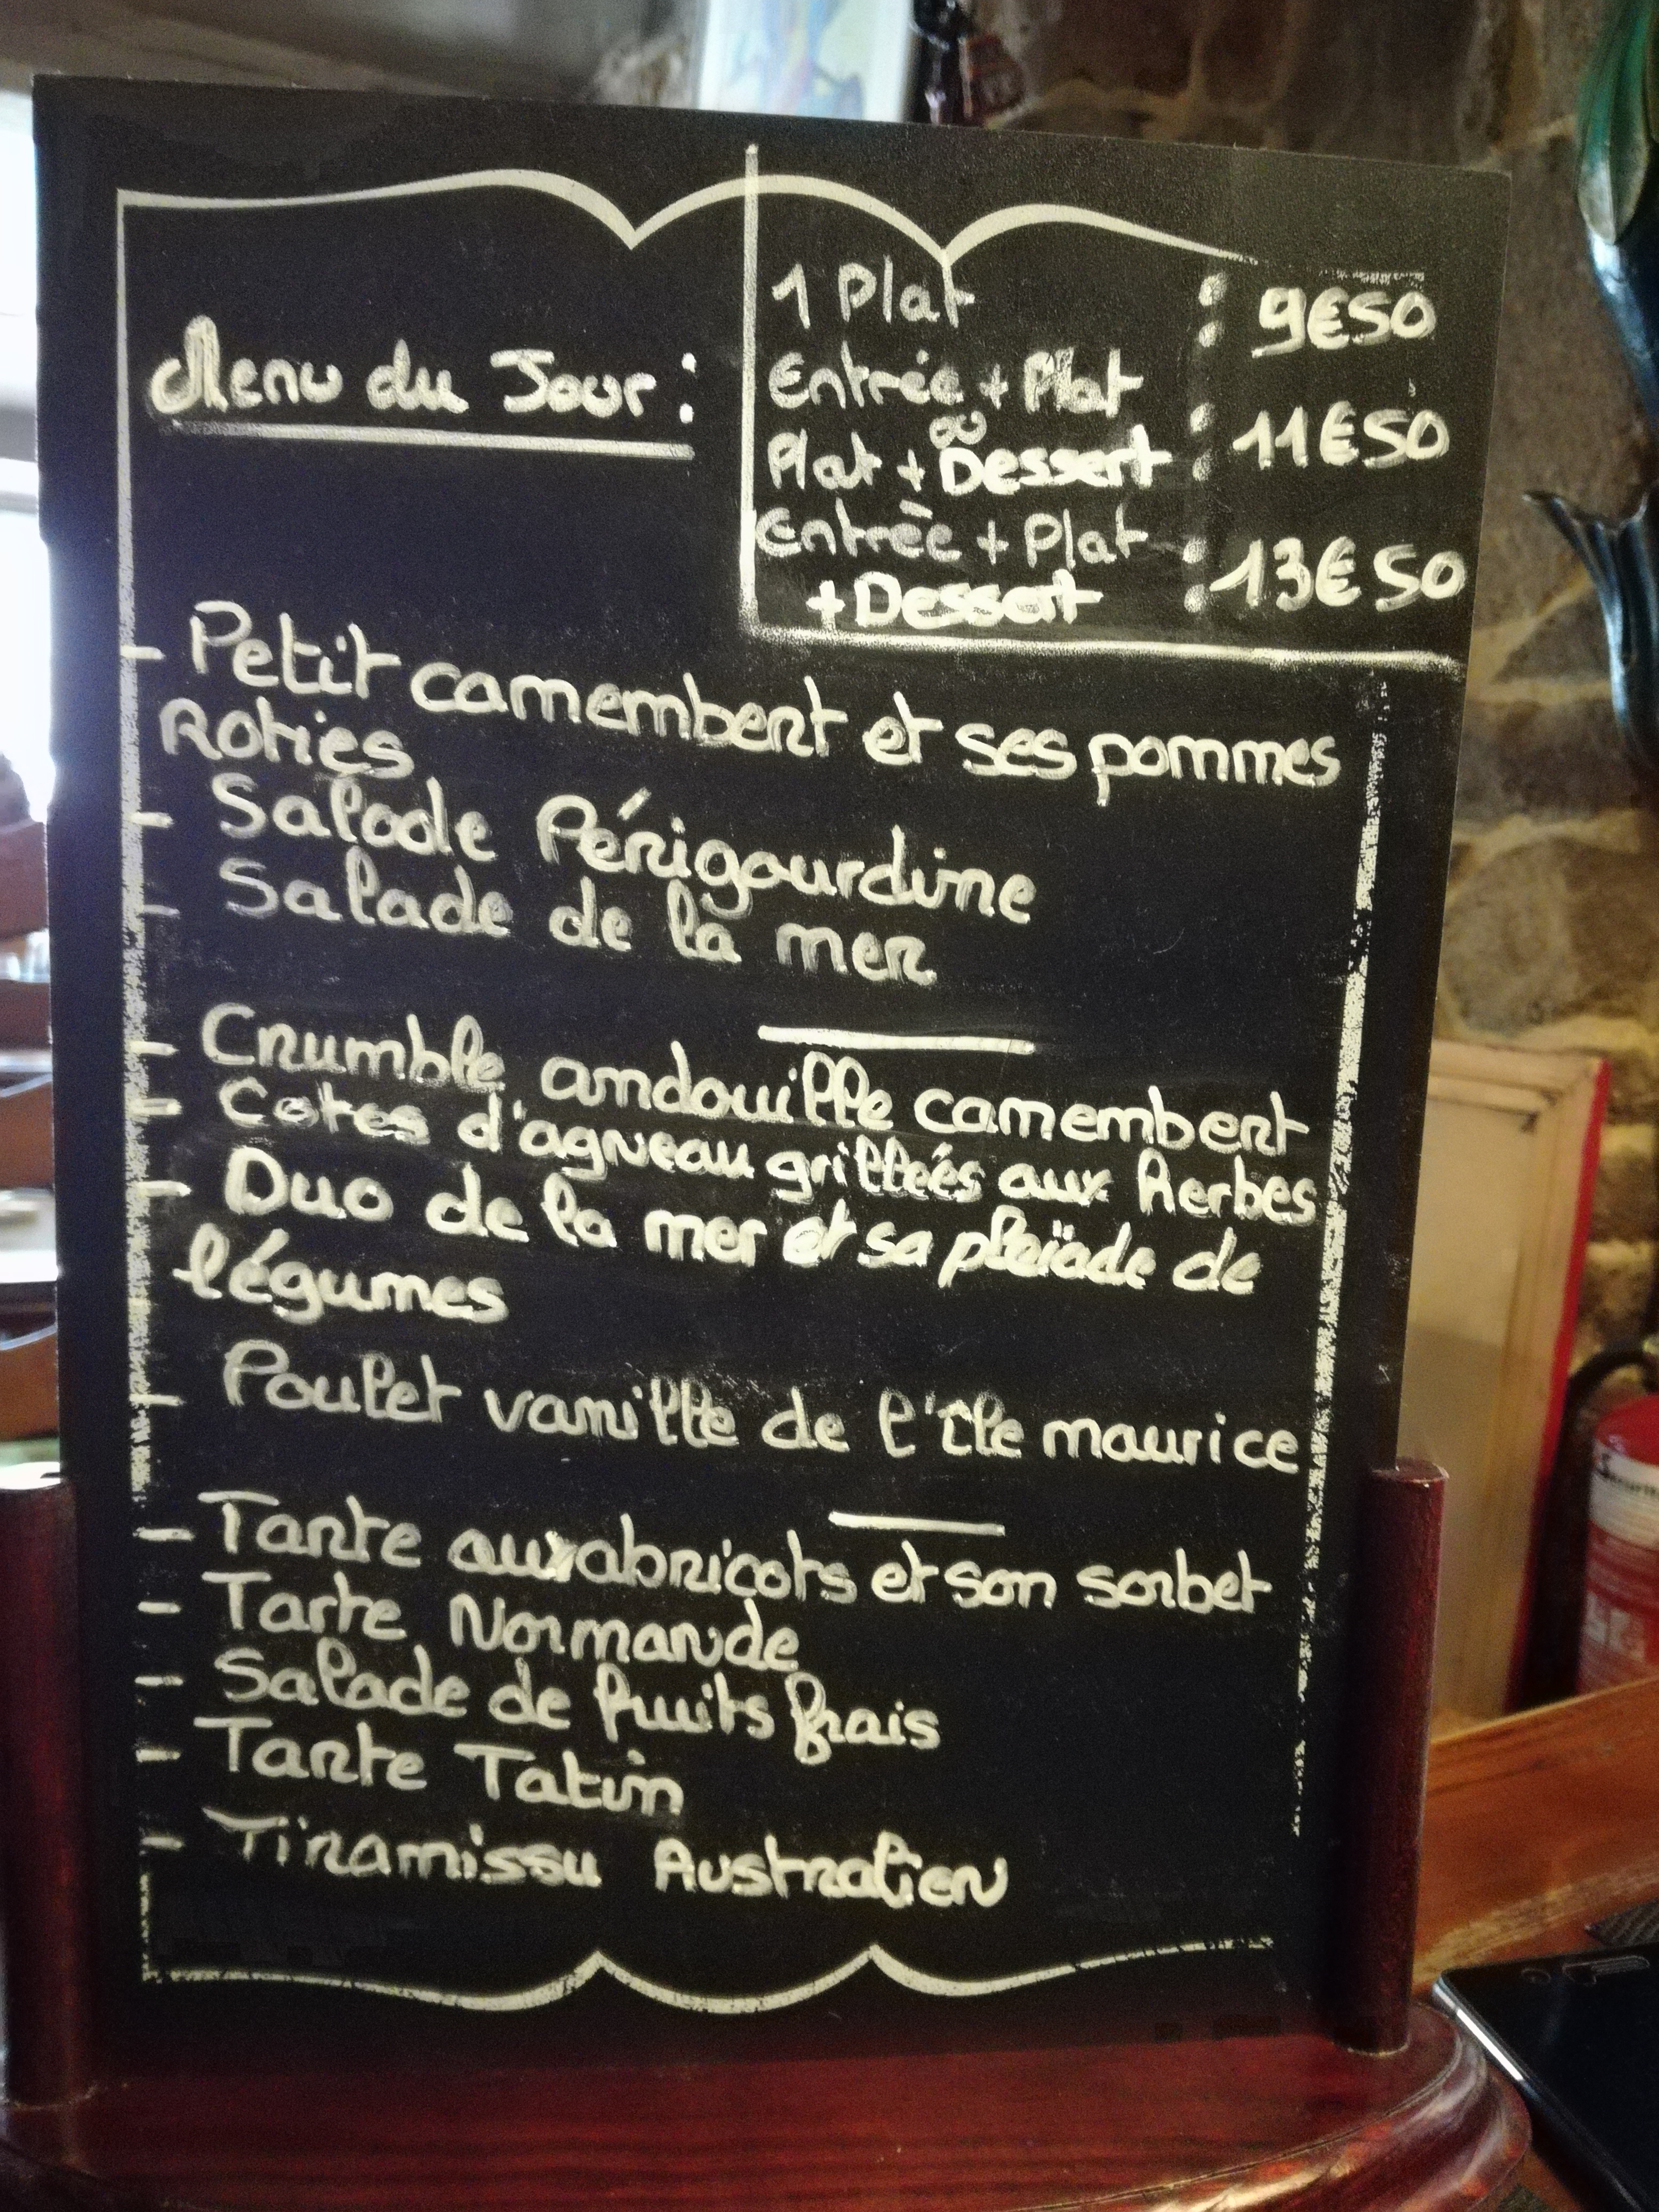 Menu du Jour :
1 Plat : 9€50
Entrée + Plat
ou
Plat + Dessert : 11€50
Entrée + Plat
+ Dessert : 13€50
- Petit camembert et ses pommes
Roties
- Salade Périgourdine
- Salade de la mer
- Crumble andouille camembert
- Cotes d'agneau grilleés aux herbes
- Duo de la mer et sa pleïade de
légumes
- Poulet vanille de l'île maurice
- Tarte aux abricots et son sorbet
- Tarte Normande
- Salade de fruits frais
- Tarte Tatin
- Tiramissu Australien